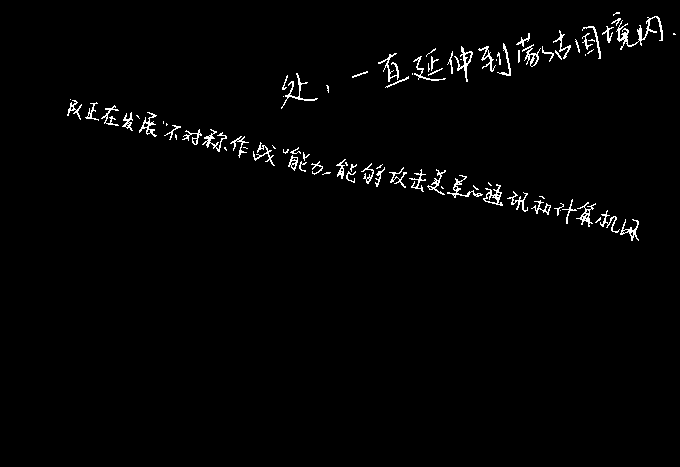 处，一直延伸到蒙古国境内.
队正在发展“不对称作战”能力，能够攻击美军心通讯和计算机网